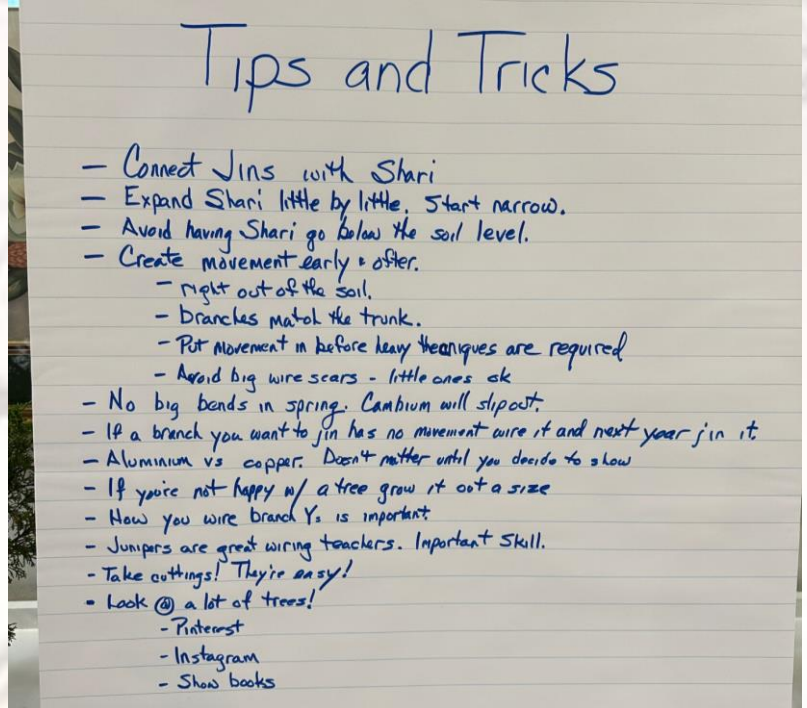 Tips and Tricks
- Connect Jins with Shari
- Expand Shari little by little. Start narrow.
- Avoid having Shari go below the soil level.
- Create movement early & often.
- right out of the soil.
- branches match the trunk.
- Put movement in before heavy theqniques are required
- Avoid big wire scars - little ones ok
- No big bends in spring. Cambium will slip out.
- If a branch you want to jin has no movement wire it and next year jin it.
- Aluminium vs copper. Doesn't matter until you decide to show
- If you're not happy w/ a tree grow it out a size
- How you wire branch Ys is important.
- Junipers are great wiring teachers. Important Skill.
- Take cuttings! They're easy!
- Look @ a lot of trees!
- Pinterest
- Instagram
- Show books